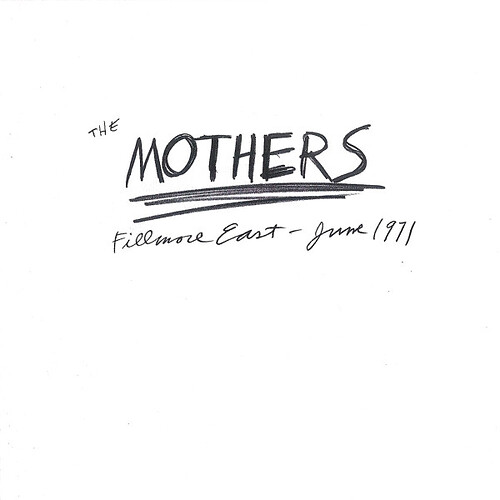 THE
MOTHERS
Fillmore East - June 1971